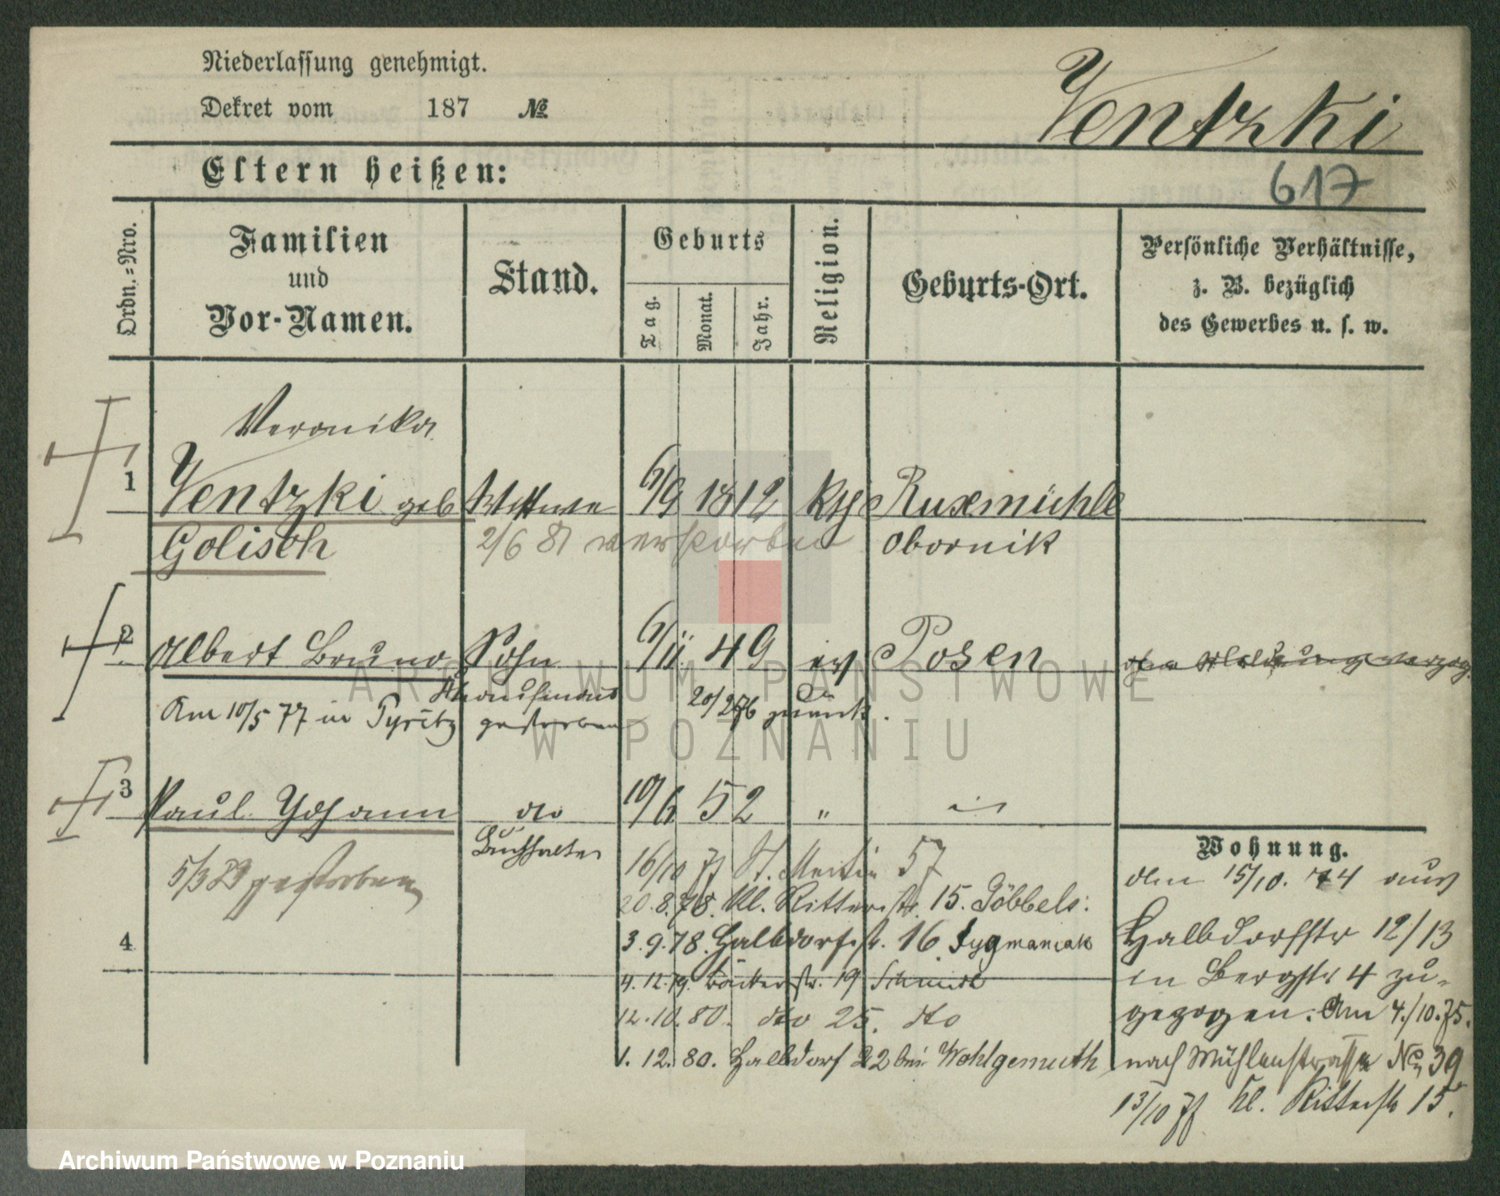 Niederlassung genehmigt.
Dekret vom 187 №
Ventzki
617
Eltern heißen:
Ordn.=Nro.
Familien
und
Vor-Namen.
Stand.
Geburts
Tag.
Monat.
Jahr.
Religion.
Geburts-Ort.
Persönliche Verhältnisse,
z. B. bezüglich
des Gewerbes u. s. w.
Veronika
1 Ventzki geb Wittwe 6/9 1812 kth Ruxmühle
Golisch 2/6 81 verstorben Obornik
2 Albert Bruno Sohn 6/11. 49 ev Posen
ohne Meldung verzog.
Am 10/5 77 in Pyritz gestorben 20/276 zurück.
3 Paul Johann do 19/6 52 "
Buchhalter
5/3 89 gestorben
16/10 77 St. Martin 57
20.8.78. Kl. Ritterstr. 15. Göbbels.
3.9.78. Halbdorfstr. 16. Sygmaniak
4
4.12.79. Bäckerstr. 19 Schmidt
12.10.80. dto 25. dto
1.12.80. Halbdorf 22 bei Wohlgemuth
Wohnung.
den 15/10. 74 aus
Halbdorfstr 12/13
in Bergstr 4 zu-
gezogen. Am 4./10.75.
nach Mühlenstrasse No 39
13/10 77 Kl. Ritterstr 15.
ARCHIWUM PAŃSTWOWE
W POZNANIU
Archiwum Państwowe w Poznaniu